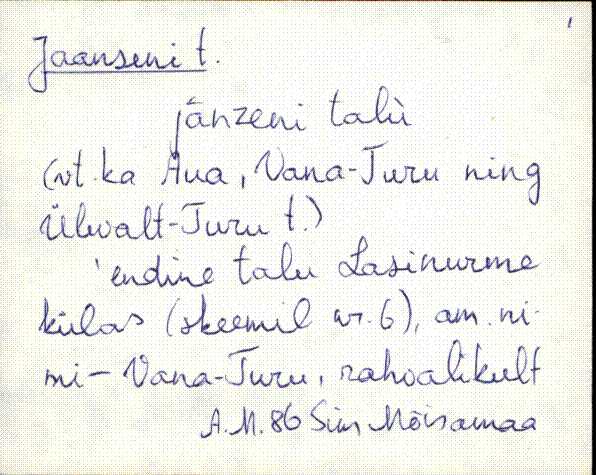 Jaanseni t.
jānzeni talù
(vt. ka Aua, Vana-Turu ning
Ülwalt-Turu t.)
'endine talu Lasinurme
külas (skeemil nr. 6), am. ni-
mi - Vana-Turu, rahvalikult
A.M. 86 Sim Mõisamaa